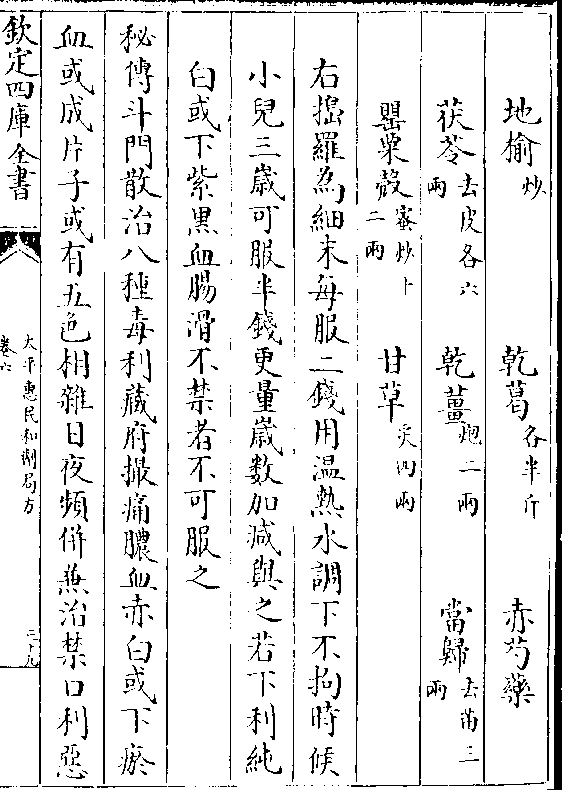 地榆炒 乾葛各半斤 赤芍藥
茯苓去皮各六兩 乾薑炮二兩 當歸去苗三兩
罌粟殼蜜炒十二兩 甘草炙四兩
右搗羅為細末每服二錢用温熱水調下不拘時候
小兒三歲可服半錢更量歲數加減與之若下利純
白或下紫黑血腸滑不禁者不可服之
秘傳斗門散治八種毒利藏府撮痛膿血赤白或下瘀
血或成片子或有五色相雜日夜頻併兼治禁口利惡
欽定四庫全書
太平惠民和劑局方
卷六
三十九